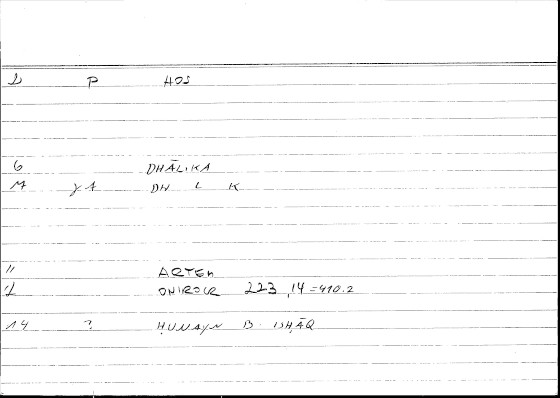 2 P HOS
6 DHĀLIKA
M γ1 DH L K
11 ARTEM
12 ONIROCR 223,14 = 410.2
14 ? ḤUNAYN B. ISḤĀQ